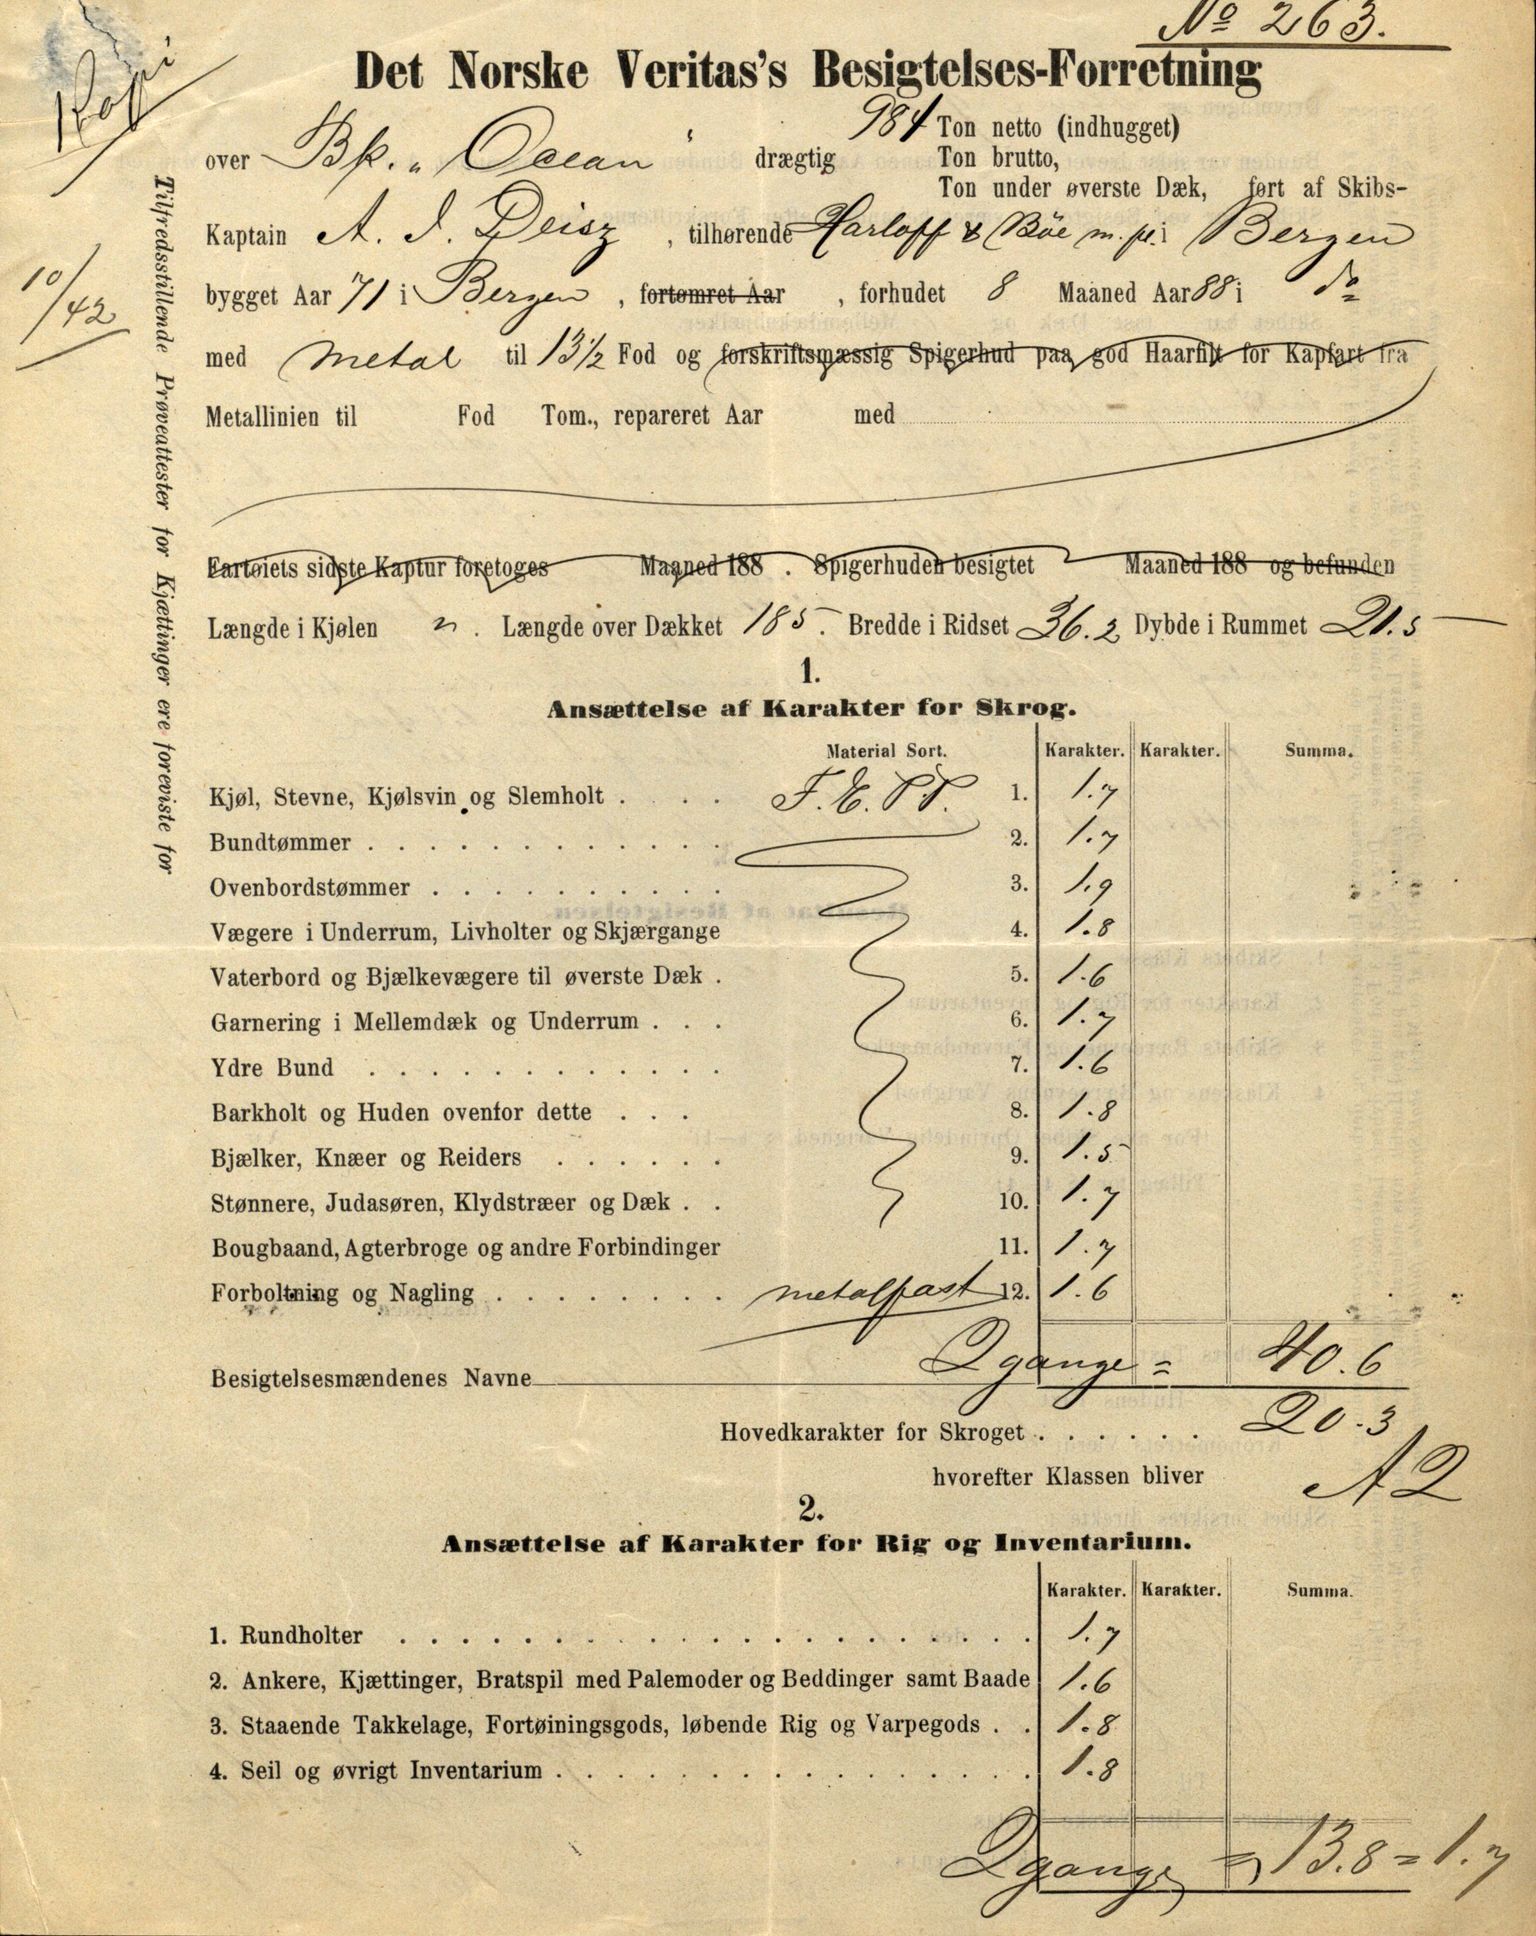 No 263.
Kopi
Det Norske Veritas's Besigtelses-Forretning
984 Ton netto (indhugget)
over Bk. „Ocean" drægtig Ton brutto,
Ton under øverste Dæk, ført af Skibs-
Kaptain A. J. Deisz, tilhørende Harloff & Böe m. fl. i Bergen
bygget Aar 71 i Bergen, fortømret Aar , forhudet 8 Maaned Aar 88 i do
med Metal til 13½ Fod og forskriftsmæssig Spigerhud paa god Haarfilt for Kapfart fra
Metallinien til Fod Tom., repareret Aar med
10/42
Tilfredsstillende Prøveattester for Kjættinger ere foreviste for
Fartøiets sidste Kaptur foretoges Maaned 188 . Spigerhuden besigtet Maaned 188 og befunden
Længde i Kjølen " . Længde over Dækket 185 . Bredde i Ridset 36.2 Dybde i Rummet 21.5
1.
Ansættelse af Karakter for Skrog.
Material Sort. Karakter. Karakter. Summa.
Kjøl, Stevne, Kjølsvin og Slemholt . . . . F. E. P P. 1. 1.7
Bundtømmer . . . . . . . . . . . . . 2. 1.7
Ovenbordstømmer . . . . . . . . . . 3. 1.9
Vægere i Underrum, Livholter og Skjærgange 4. 1.8
Vaterbord og Bjælkevægere til øverste Dæk . 5. 1.6
Garnering i Mellemdæk og Underrum . . . 6. 1.7
Ydre Bund . . . . . . . . . . . . . 7. 1.6
Barkholt og Huden ovenfor dette . . . 8. 1.8
Bjælker, Knæer og Reiders . . . . . . 9. 1.5
Stønnere, Judasøren, Klydstræer og Dæk . . 10. 1.7
Bougbaand, Agterbroge og andre Forbindinger 11. 1.7
Forboltning og Nagling . . . . . . . . metalfast 12. 1.6
Besigtelsesmændenes Navne 2 gange = 40.6
Hovedkarakter for Skroget . . . . . . 20.3
hvorefter Klassen bliver A2
2.
Ansættelse af Karakter for Rig og Inventarium.
Karakter. Karakter. Summa.
1. Rundholter . . . . . . . . . . . . . . . . . . . . . 1.7
2. Ankere, Kjættinger, Bratspil med Palemoder og Beddinger samt Baade 1.6
3. Staaende Takkelage, Fortøiningsgods, løbende Rig og Varpegods . . 1.8
4. Seil og øvrigt Inventarium . . . . . . . . . . . . . . . . 1.8
2 gange = 13.8 = 1.7